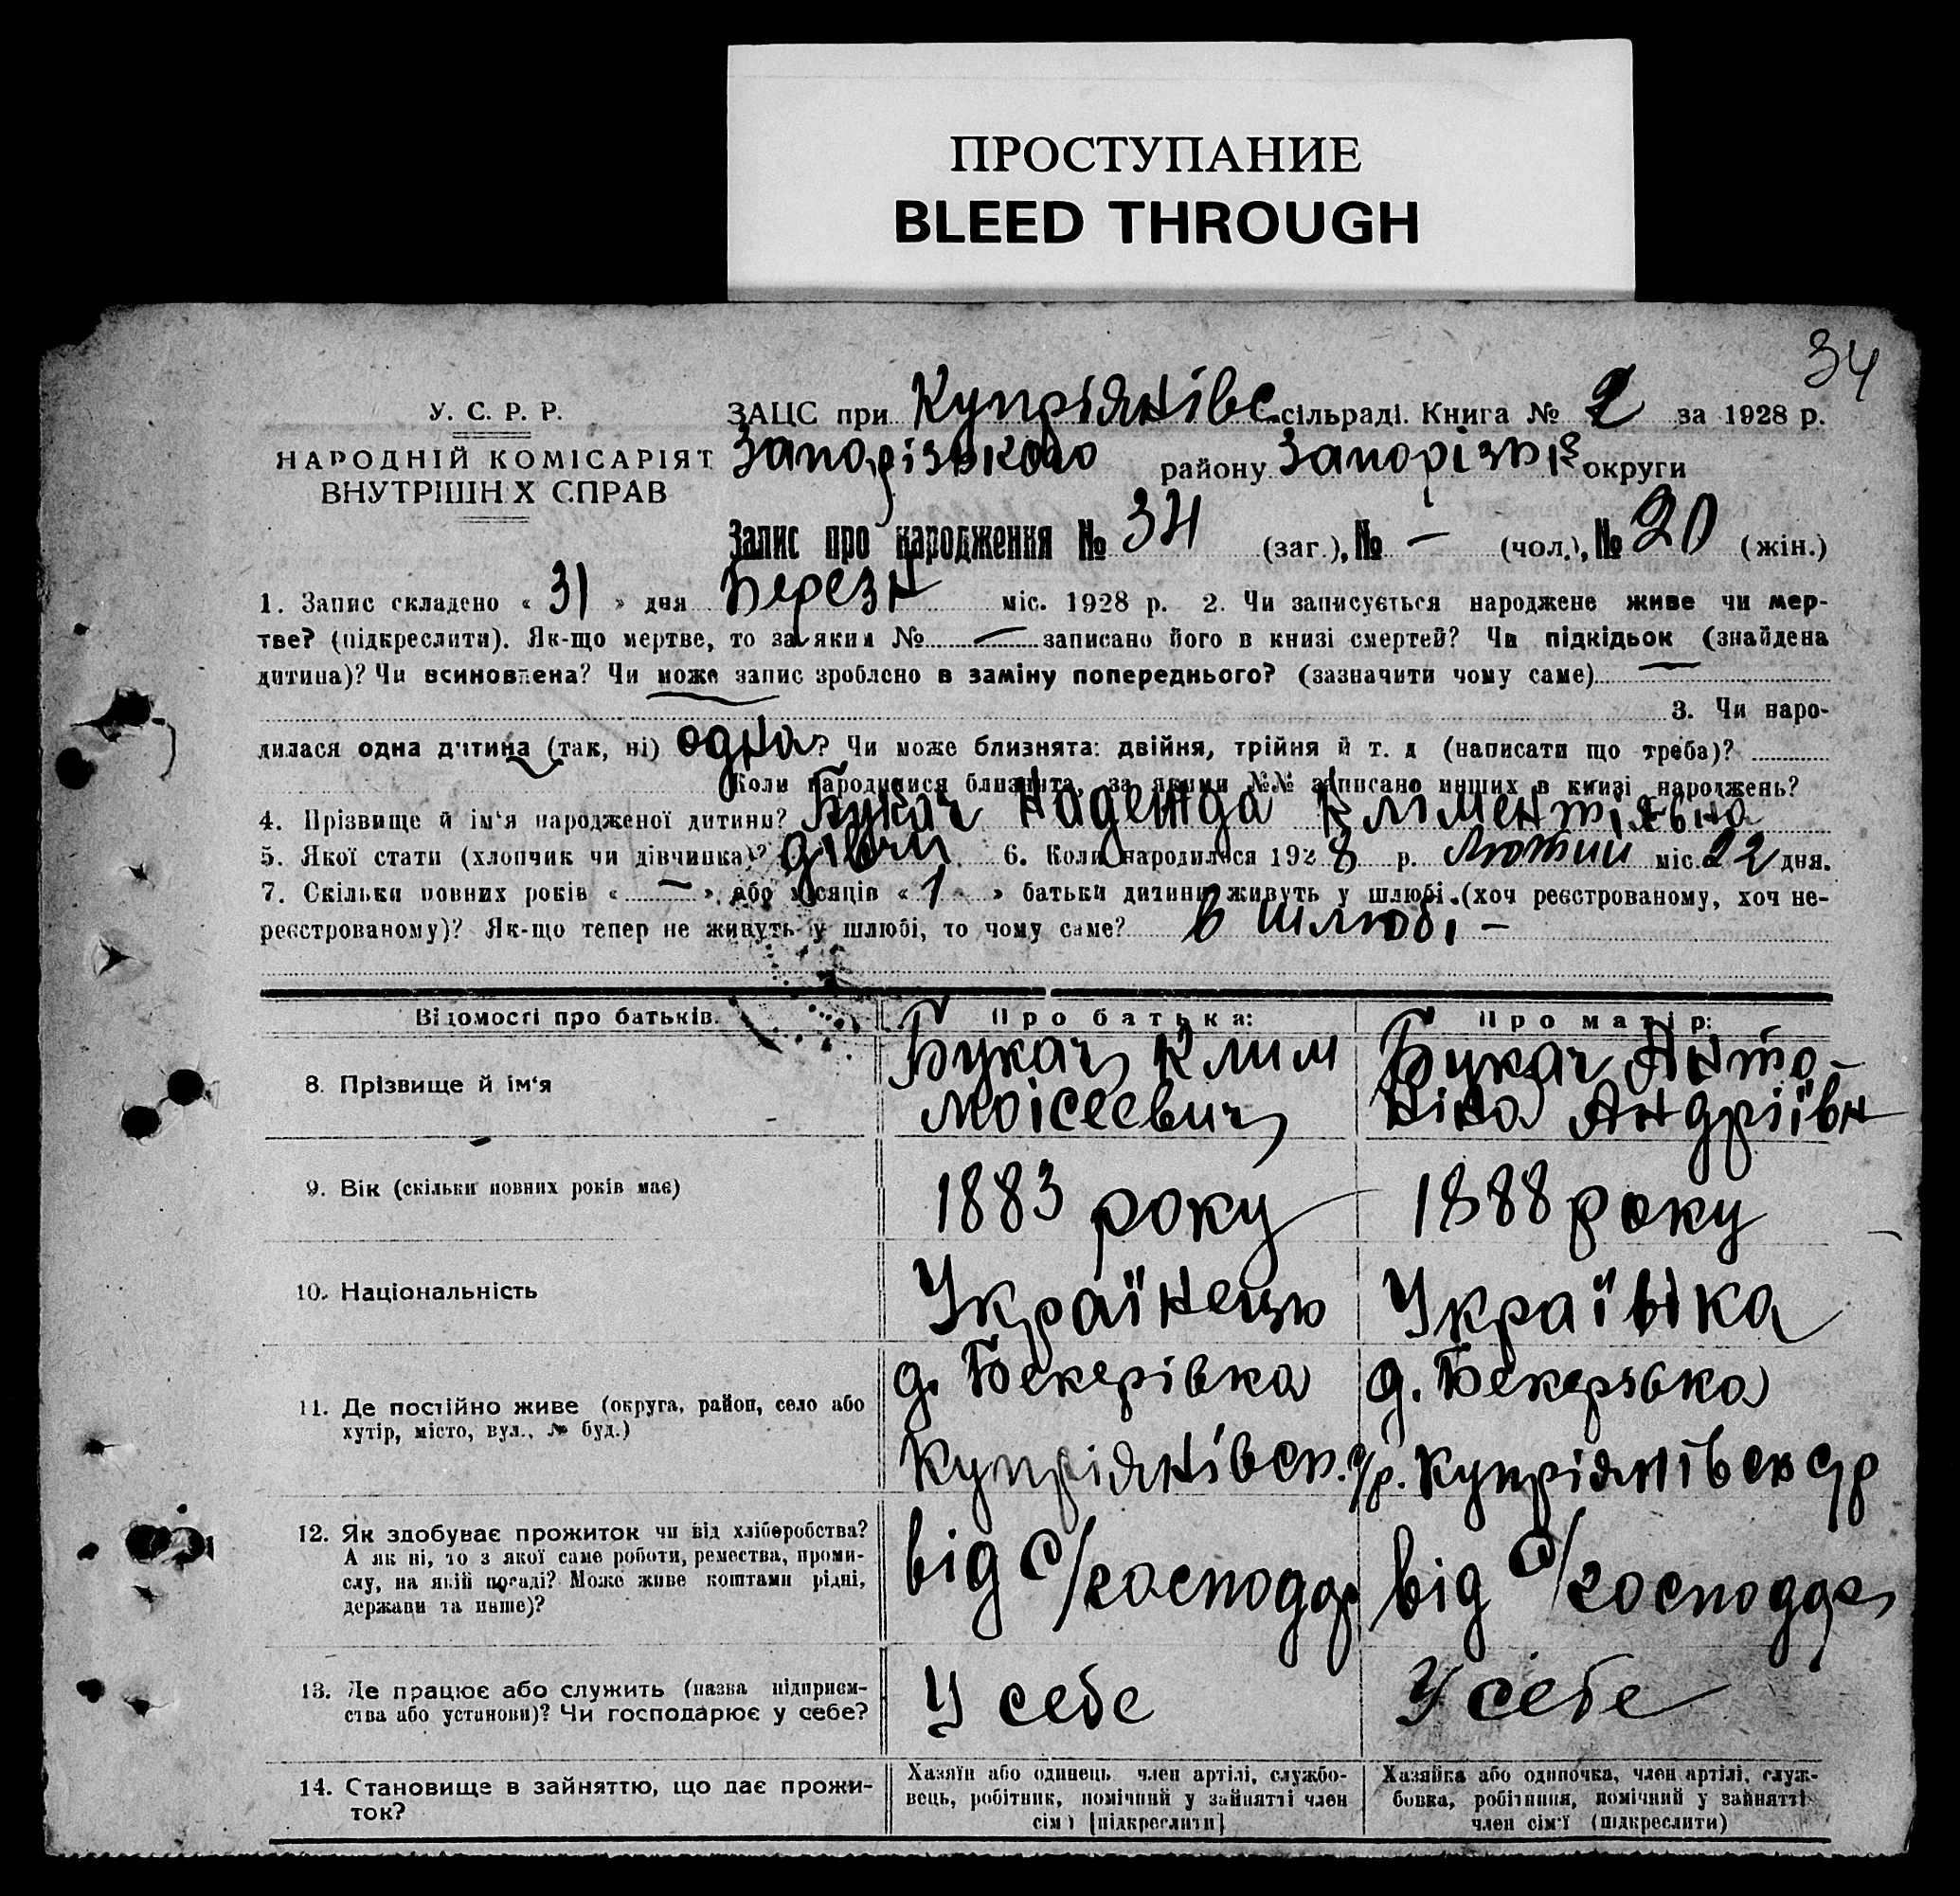 ПРОСТУПАНИЕ
BLEED THROUGH
34
У. С. Р. Р.
НАРОДНІЙ КОМІСАРІЯТ
ВНУТРІШН Х СПРАВ
ЗАЦС при Купріянівс сільраді. Книга № 2 за 1928 р.
Запорізького району Запорізьк округи
Запис про народження № 34 (заг.), № – (чол.), № 20 (жін.)
1. Запис складено « 31 » дня Березн міс. 1928 р. 2. Чи записується народжене живе чи мер-
тве? (підкреслити). Як-що мертве, то за яким № — записано його в книзі смертей? Чи підкідьок (знайдена
дитина)? Чи всиновлена? Чи може запис зроблено в заміну попереднього? (зазначити чому саме) —
3. Чи наро-
дилася одна дитина (так, ні) одна? Чи може близнята: двійня, трійня й т. д (написати що треба)?
Коли народилися близнята, за якими №№ записано инших в книзі народжень?
4. Прізвище й ім'я народженої дитини? Букач Надежда Кліментіявна
5. Якої стати (хлопчик чи дівчинка)? дівчи 6. Коли народилася 1928 р. Лютий міс. 22 дня.
7. Скільки повних років « — », або місяців « 1 » батьки дитини живуть у шлюбі (хоч реєстрованому, хоч не-
реєстрованому)? Як-що тепер не живуть у шлюбі, то чому саме? В шлюбі –
Відомості про батьків. Про батька: Про матір:
8. Прізвище й ім'я
Букач Клим
Моісеевич
Букач Анто-
ніна Андріївн
9. Вік (скільки повних років має) 1883 року 1888 року
10. Національність Українець Українка
11. Де постійно живе (округа, район, село або
хутір, місто, вул., № буд.)
д. Бекерівка
Купріянівсь. с/р.
д. Бекерівка
Купріянівсь с/р
12. Як здобуває прожиток чи від хліборобства?
А як ні, то з якої саме роботи, ремества, проми-
слу, на якій посаді? Може живе коштами рідні,
держави та инше)?
від с/господар
від с/господар
13. Де працює або служить (назва підприєм-
ства або установи)? Чи господарює у себе?
У себе
У себе
14. Становище в зайняттю, що дає прожи-
ток?
Хазяїн або одинець, член артілі, службо-
вець, робітник, помічний у зайнятті член
сім'ї [підкреслити]
Хазяйка або одиночка, член артілі, служ-
бовка, робітниця, помічний у зайнятті
член сім'ї (підкреслити)